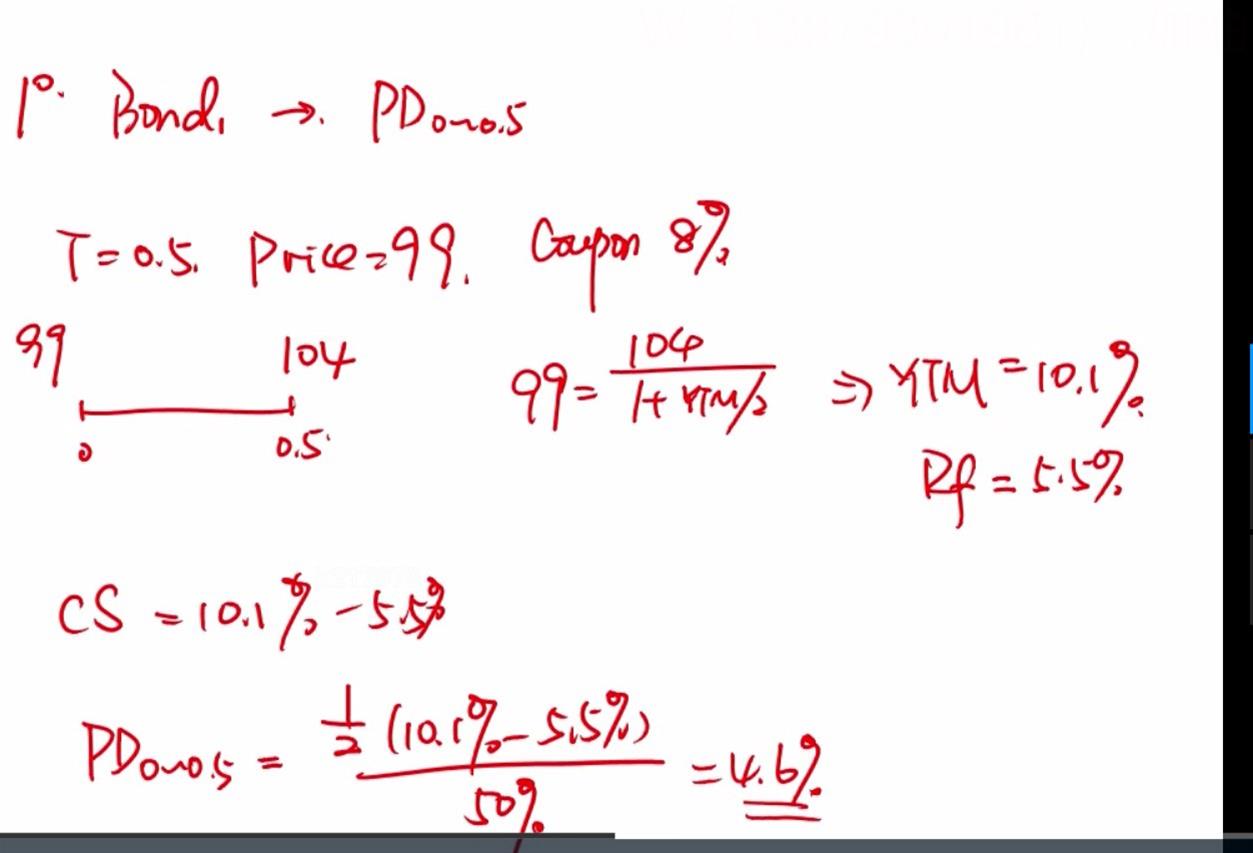 1°. Bond₁ → PD₀~₀.₅
T=0.5. Price=99. Coupon 8%
99 104
0 0.5
99 = 104 / 1+YTM/2 ⇒ YTM=10.1%
Rf = 5.5%
CS = 10.1% - 5.5%
PD₀~₀.₅ = 1/2 (10.1% - 5.5%) / 50% = 4.6%